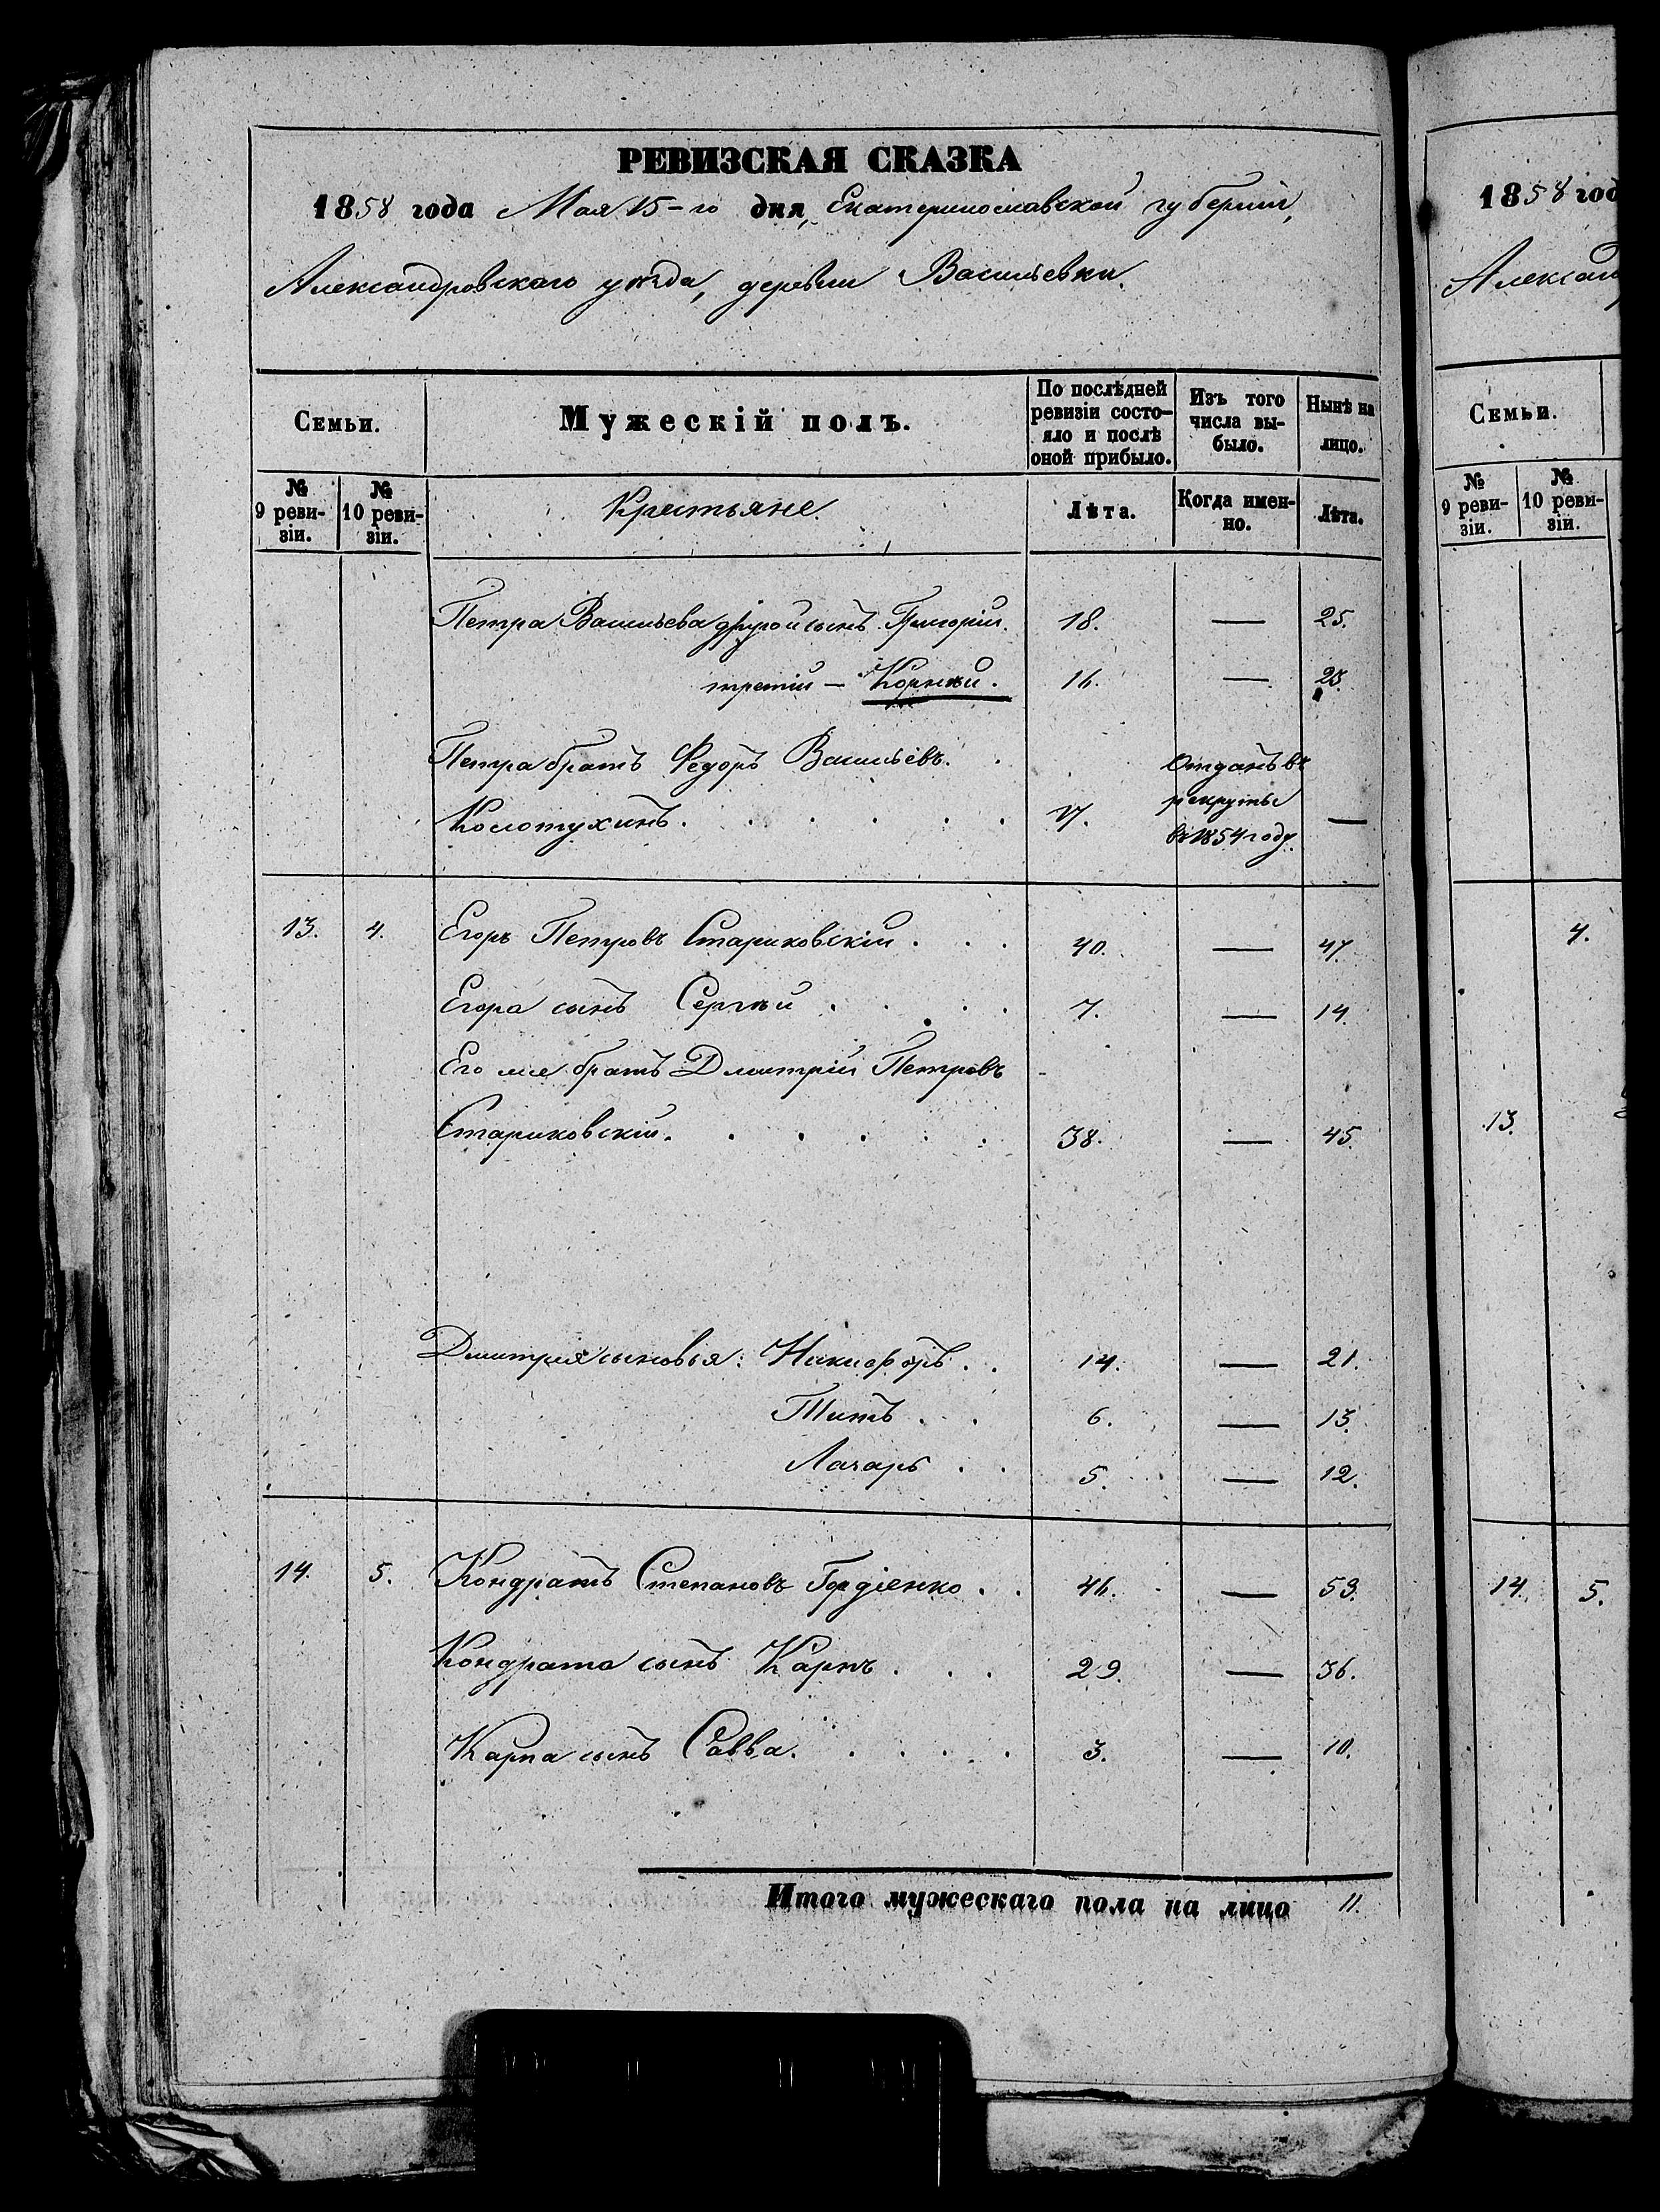 РЕВИЗСКАЯ СКАЗКА
1858 года Мая 15-го дня, Екатеринославской губерніи,
Александровскаго уѣзда, деревни Васильевки.
Семьи.
Мужескій полъ.
По послѣдней ревизіи состо-
яло и послѣ
оной прибыло.
Изъ того
числа вы-
было.
Нынѣ на
лицо.
№
9 реви-
зіи.
№
10 реви-
зіи.
Крестьяне.
Лѣта.
Когда имен-
но.
Лѣта.
Петра Васильева другой сынъ Григорій. 18. — 25.
третій — Корнѣй. 16. — 23.
Петра братъ Федоръ Васильевъ.
Колотухинъ. 17. Отданъ въ рекруты въ 1854 году. —
13. 4. Егоръ Петровъ Стариковскій. 40. — 47.
Егора сынъ Сергѣй. 7. — 14.
Его же братъ Дмитрій Петровъ
Стариковскій. 38. — 45.
Дмитрія сыновья: Никифоръ. 14. — 21.
Титъ. 6. — 13.
Лазарь. 5. — 12.
14. 5. Кондратъ Степановъ Гордіенко. 46. — 53.
Кондрата сынъ Карпъ. 29. — 36.
Карпа сынъ Савва. 3. — 10.
Итого мужескаго пола на лицо 11.
1858 год
Александ
Семьи.
№
9 реви-
зіи.
№
10 реви-
зіи.
4.
13.
14. 5.